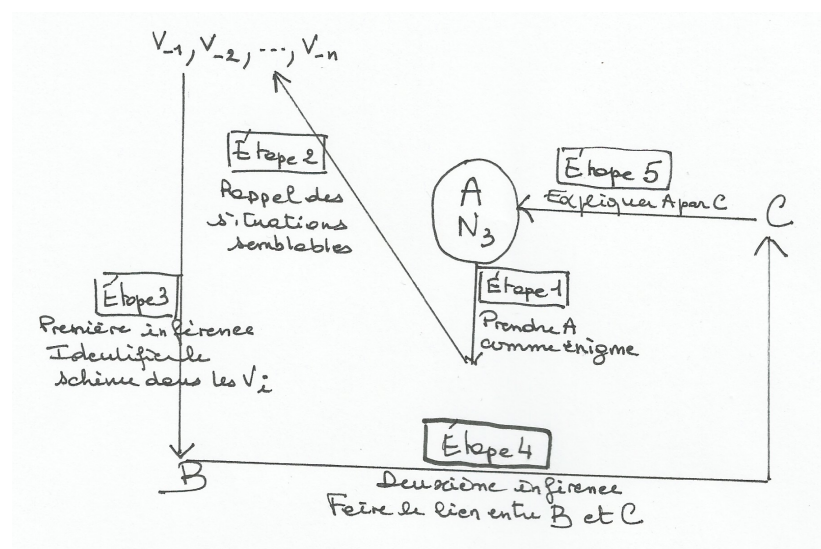 V₋₁, V₋₂, ..., V₋ₙ
Étape 2
Rappel des
situations
semblables
Étape 5
Expliquer A par C
C
A
N₃
Étape 1
Prendre A
comme énigme
Étape 3
Première inférence
Identifier le
schème dans les Vᵢ
B
Étape 4
Deuxième inférence
Faire le lien entre B et C